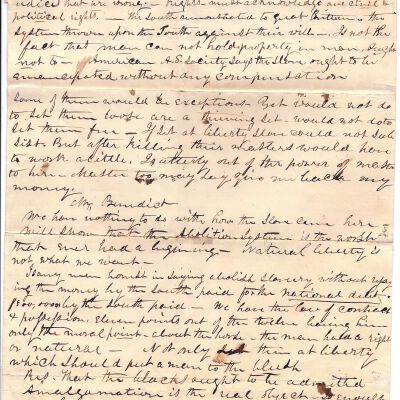 udices that are wrong. - Rights must acknowledge are civil &
political rights. - the South remonstrated to Great Britain. the
system thrown upon the South against their will - Is not the
fact that man can not hold property in man, ought
not to - American A.S. Society says the Slave ought to be
emancipated without any compensation
Some of them would be exceptions But would not do
to set them loose are a set would not do to
set them free - If set at liberty Slave could not sub
sist. But after killing their Masters would have
to work a little. Is utterly out of the power of master
to Master too may day give me back my
money.
Mr Benedict
We have nothing to do with how the Slave came here
Will show that the Abolition System is the worst
that ever had a beginning - Natural liberty is
not what we want -
Is any man honest in saying abolish slavery without repay
ing the money by the South paid for the national debt.
by the South paid - We have the law of contract
& possession, eleven points out of the twelve leaving his
only the moral point - about the horse - the man had a right
or natural - Not only set them at liberty
which should put a man to the blush
Res. That the blacks ought to be admitted
Amalgamation is the real object